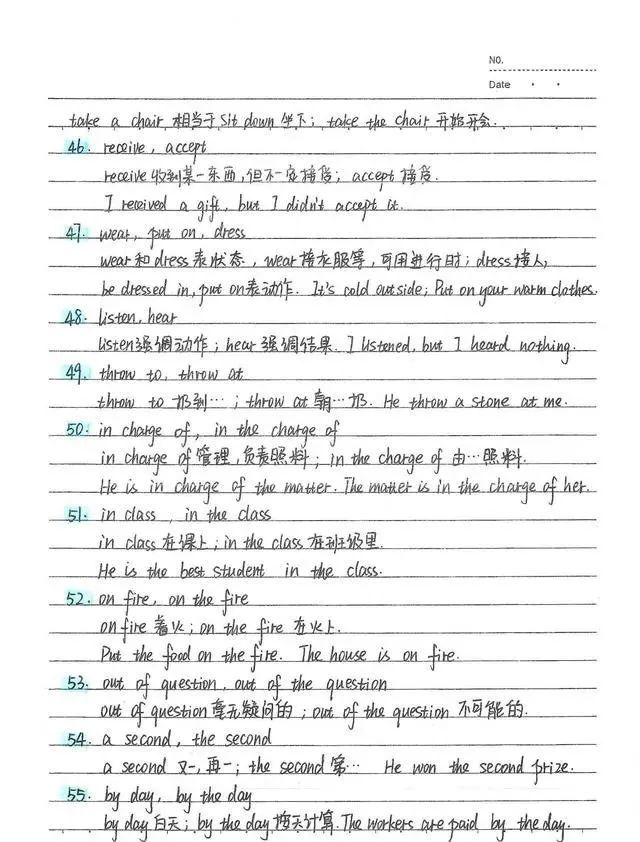 NO.
Date
take a chair 相当于 sit down 坐下; take the chair 开始开会.
46. receive, accept
receive 收到某一东西, 但不一定接受; accept 接受.
I received a gift, but I didn't accept it.
47. wear, put on, dress
wear 和 dress 表状态, wear 接衣服等, 可用进行时; dress 接人,
be dressed in, put on 表动作. It's cold outside; Put on your warm clothes.
48. listen, hear
listen 强调动作; hear 强调结果. I listened, but I heard nothing.
49. throw to, throw at
throw to 扔到…; throw at 朝…扔. He throw a stone at me.
50. in charge of, in the charge of
in charge of 管理, 负责照料; in the charge of 由…照料.
He is in charge of the matter. The matter is in the charge of her.
51. in class, in the class
in class 在课上; in the class 在班级里.
He is the best student in the class.
52. on fire, on the fire
on fire 着火; on the fire 在火上.
Put the food on the fire. The house is on fire.
53. out of question, out of the question
out of question 毫无疑问的; out of the question 不可能的.
54. a second, the second
a second 又一, 再一; the second 第… He won the second prize.
55. by day, by the day
by day 白天; by the day 按天计算. The workers are paid by the day.